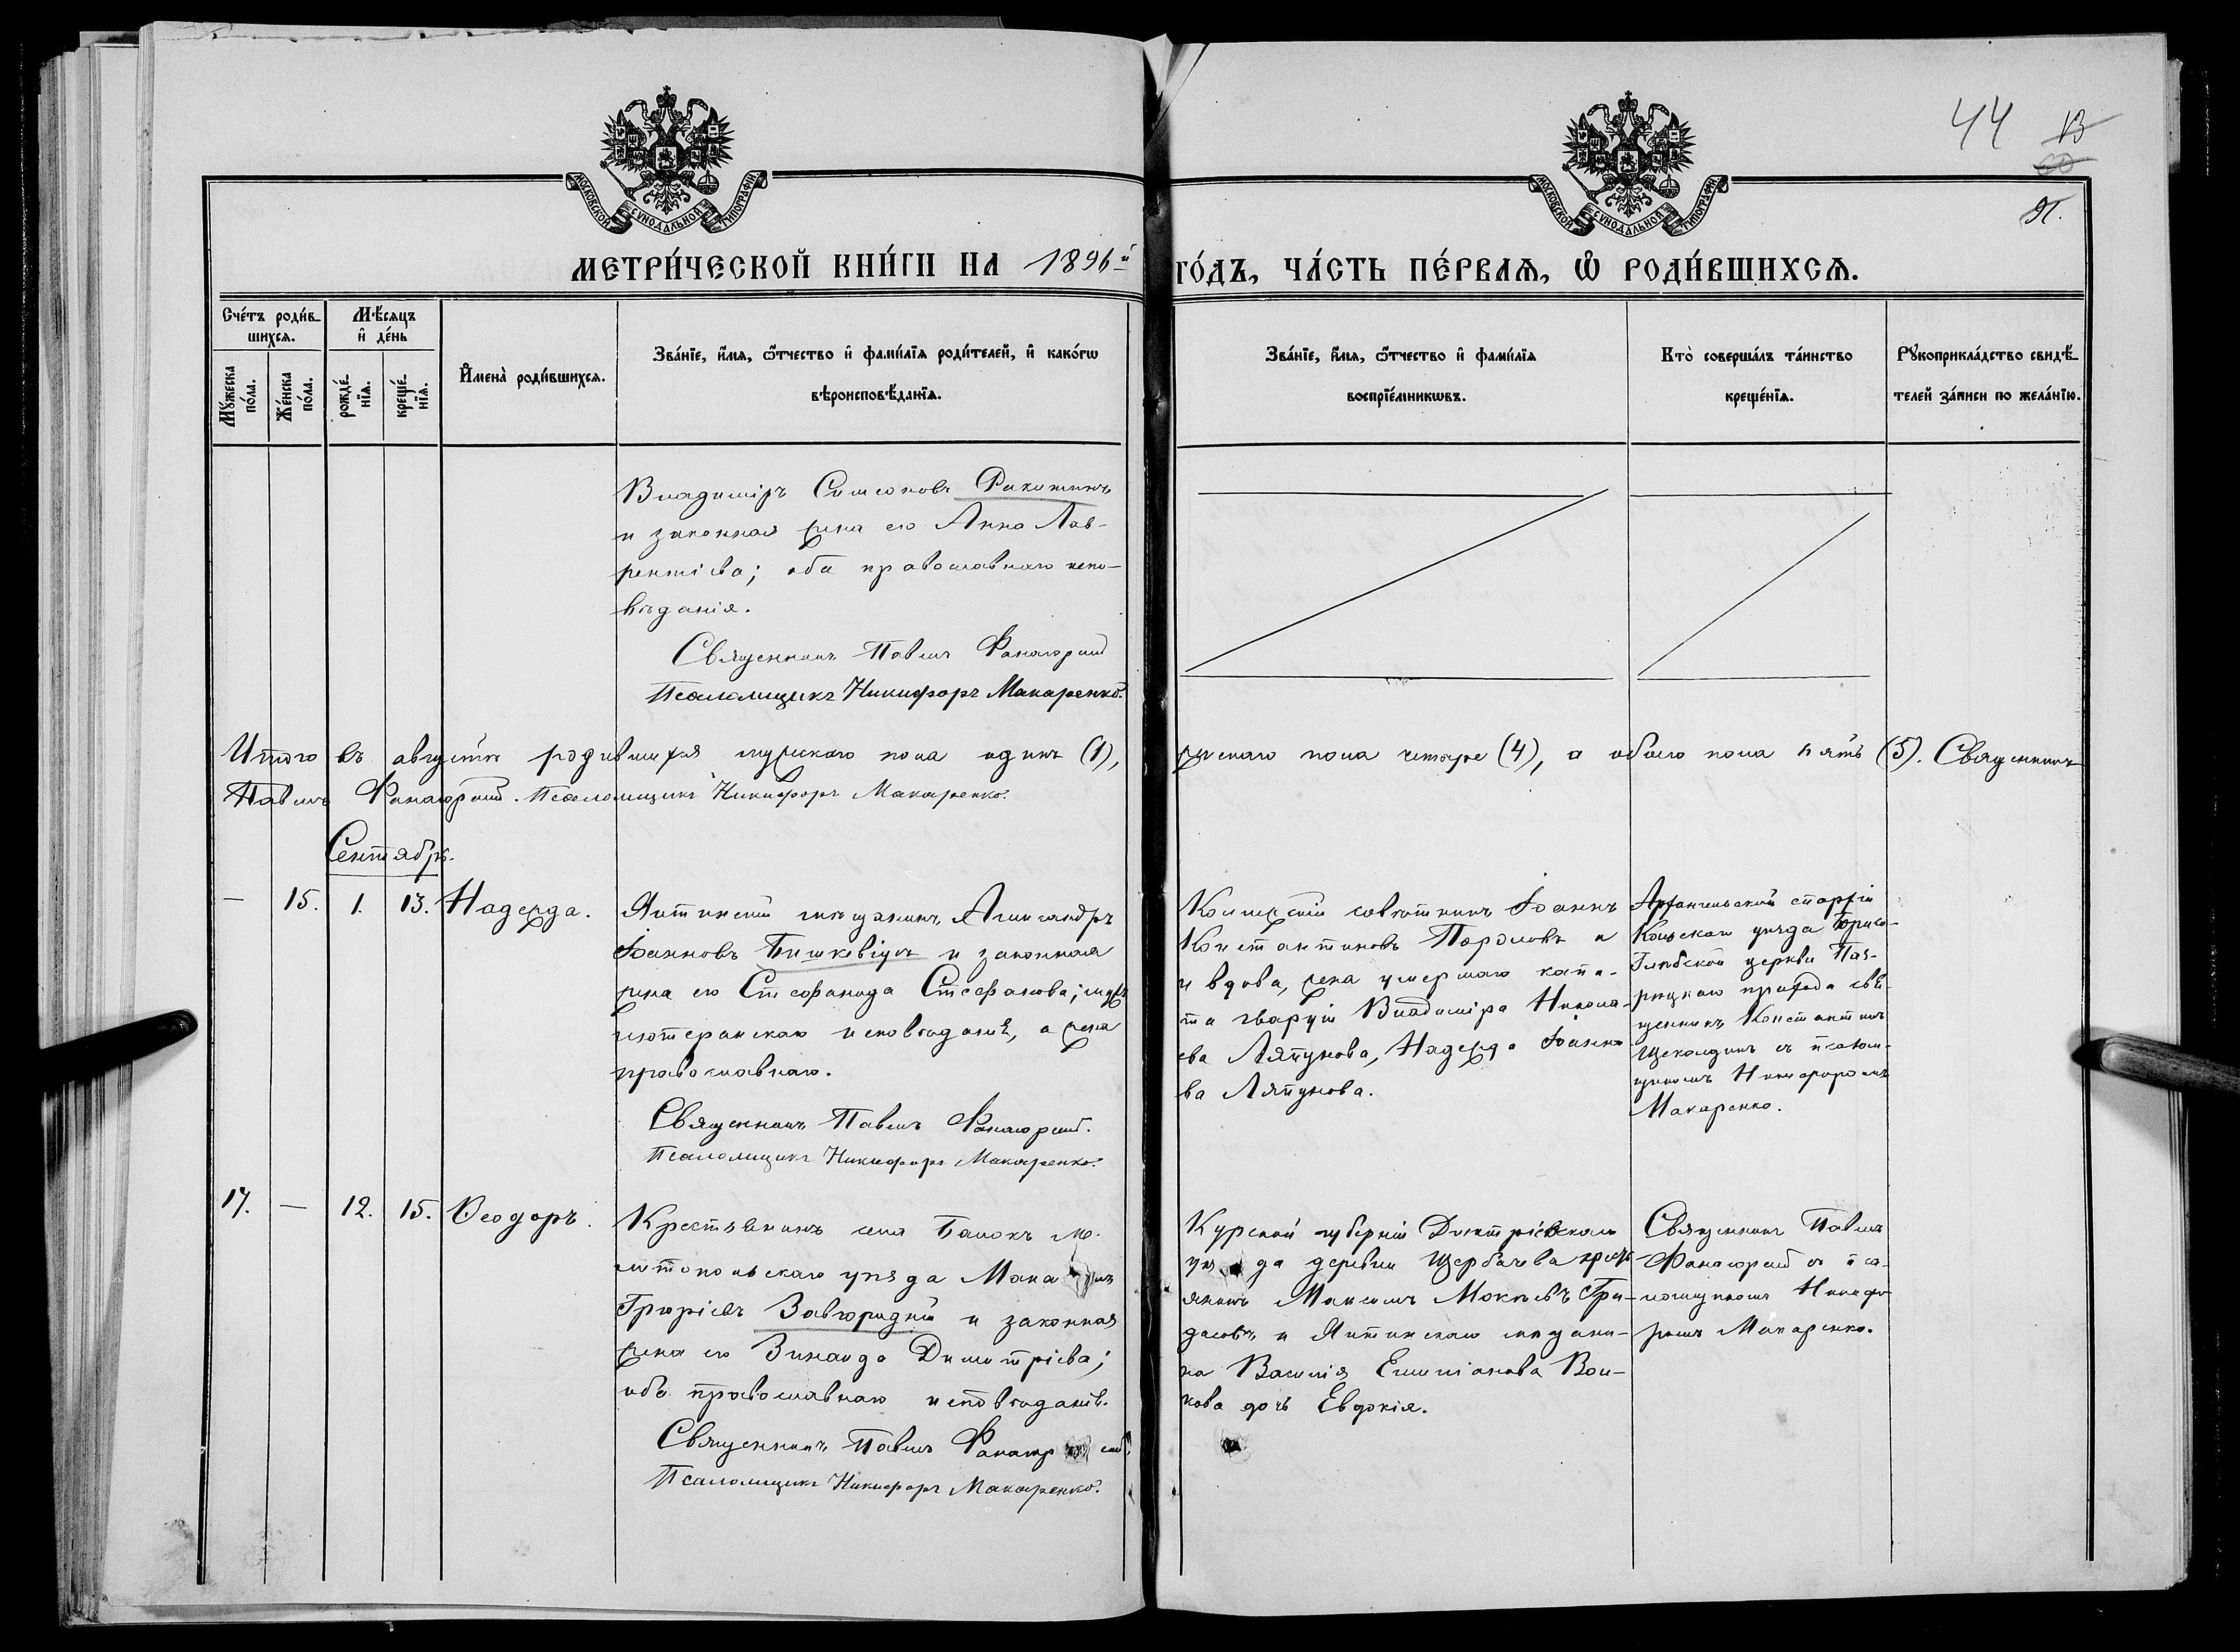 44 13
60
МОСКОВСКОЙ СУНОДАЛЬНОЙ ТИПОГРАФІИ
МОСКОВСКОЙ СУНОДАЛЬНОЙ ТИПОГРАФІИ
МЕТРИ́ЧЕСКОЙ КНИ́ГИ НА 1896й ГО́ДЪ, ЧА́СТЬ ПЕ́РВАѦ, Ѡ РОДИ́ВШИХСѦ.
Сче́тъ роди́в
шихсѧ.
Мѣ́сѧцъ
и҆ де́нь
Мꙋ́жеска по́ла.
Же́нска по́ла.
рожде́нїѧ.
креще́нїѧ.
И҆мена̀ роди́вшихсѧ.
Зва́нїе, и҆́мѧ, ѻ҆́тчество и҆ фамѝлїѧ роди́телей, и҆ како́гѡ
вѣроисповѣ́данїѧ.
Зва́нїе, и҆́мѧ, ѻ҆́тчество и҆ фамѝлїѧ
воспрїе́мникѡвъ.
Кто̀ соверша́лъ та́инство
креще́нїѧ.
Рꙋкоприкла́дство свидѣ́
телей за́писи по жела́нїю.
Владиміръ Симоновъ Ракитинъ
и законная жена его Анна Лав-
рентіева; оба православнаго испо-
вѣданія.
Священникъ Павелъ Фанагорскій
Псаломщикъ Никифоръ Макаренко.
Итого въ августѣ родившихся мужескаго пола одинъ (1), женскаго пола четыре (4), а обоего пола пять (5). Священникъ
Павелъ Фанагорскій. Псаломщикъ Никифоръ Макаренко.
Сентябрь.
— 15. 1. 13. Надежда.
Ялтинскій мѣщанинъ Александръ
Іоанновъ Бишкевіцъ и законная
жена его Стефанида Стефанова; мужъ
лютеранскаго исповѣданія, а жена
православнаго.
Священникъ Павелъ Фанагорскій.
Псаломщикъ Никифоръ Макаренко.
Коллежскій совѣтникъ Іоаннъ
Константиновъ Порохов и
и вдова, жена умершаго капи-
та гвардіи Владиміра Никола-
ева Ляпунова, Надежда Іоанно
ва Ляпунова.
Архангельской епархіи
Кольскаго уѣзда Борисо-
Глѣбской церкви Паз-
рѣцкаго прихода свя-
щенникъ Константинъ
Щеколдинъ съ псалом-
щикомъ Никифоромъ
Макаренко.
17. — 12. 15. Ѳеодоръ.
Крестьянинъ села Балокъ Ме-
литопольскаго уѣзда
Завгородній и законная
жена его Зинаида Димитріева;
оба православнаго исповѣданія.
Священникъ Павелъ Фанагорскій.
Псаломщикъ Никифоръ Макаренко.
Курской губерніи Дмитріевскаго
уѣзда деревни Щербачева крест
янинъ Максимъ Мокіевъ Гри-
дасовъ и Ялтинскаго мѣщани-
на Василія Емиліанова Вол-
кова дочь Евдокія.
Священникъ Павелъ
Фанагорскій съ пса-
ломщикомъ Никифо
ромъ Макаренко.